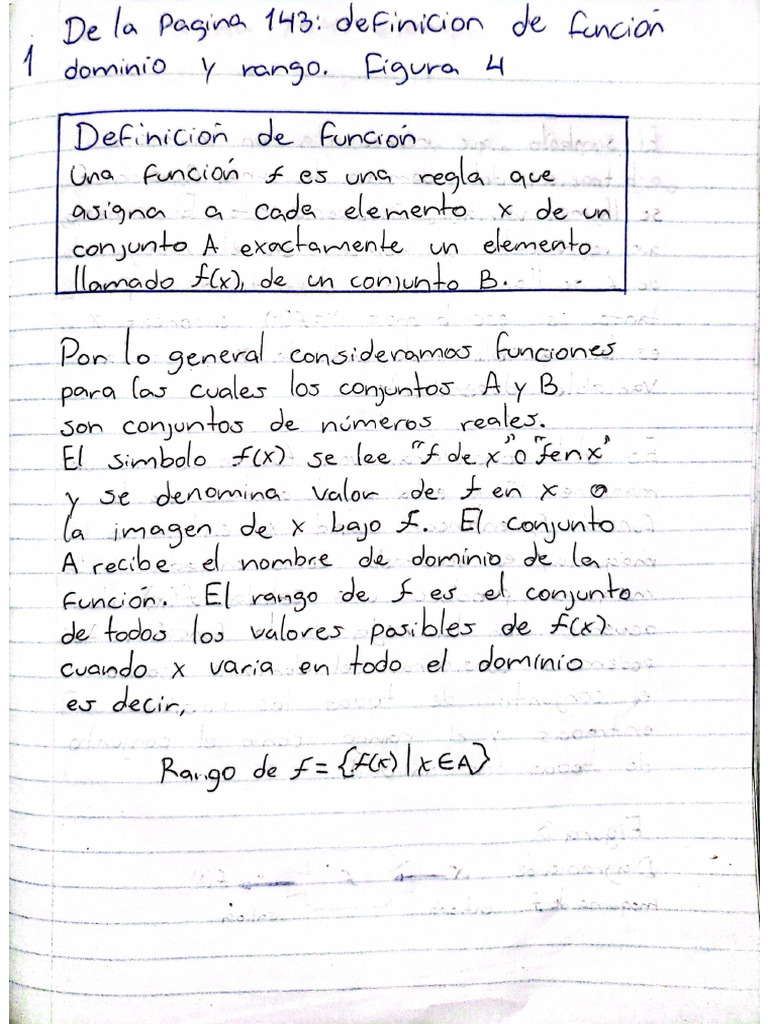 De la Pagina 143: definicion de función
1 dominio y rango. Figura 4
Definición de función
Una función f es una regla que
asigna a cada elemento x de un
conjunto A exactamente un elemento
llamado f(x), de un conjunto B.
Por lo general consideramos funciones
para las cuales los conjuntos A y B
son conjuntos de números reales.
El simbolo f(x) se lee "f de x" o "f en x"
y se denomina valor de f en x o
la imagen de x bajo f. El conjunto
A recibe el nombre de dominio de la
función. El rango de f es el conjunto
de todos los valores posibles de f(x)
cuando x varia en todo el dominio
es decir,
Rango de f = {f(x) | x ∈ A}